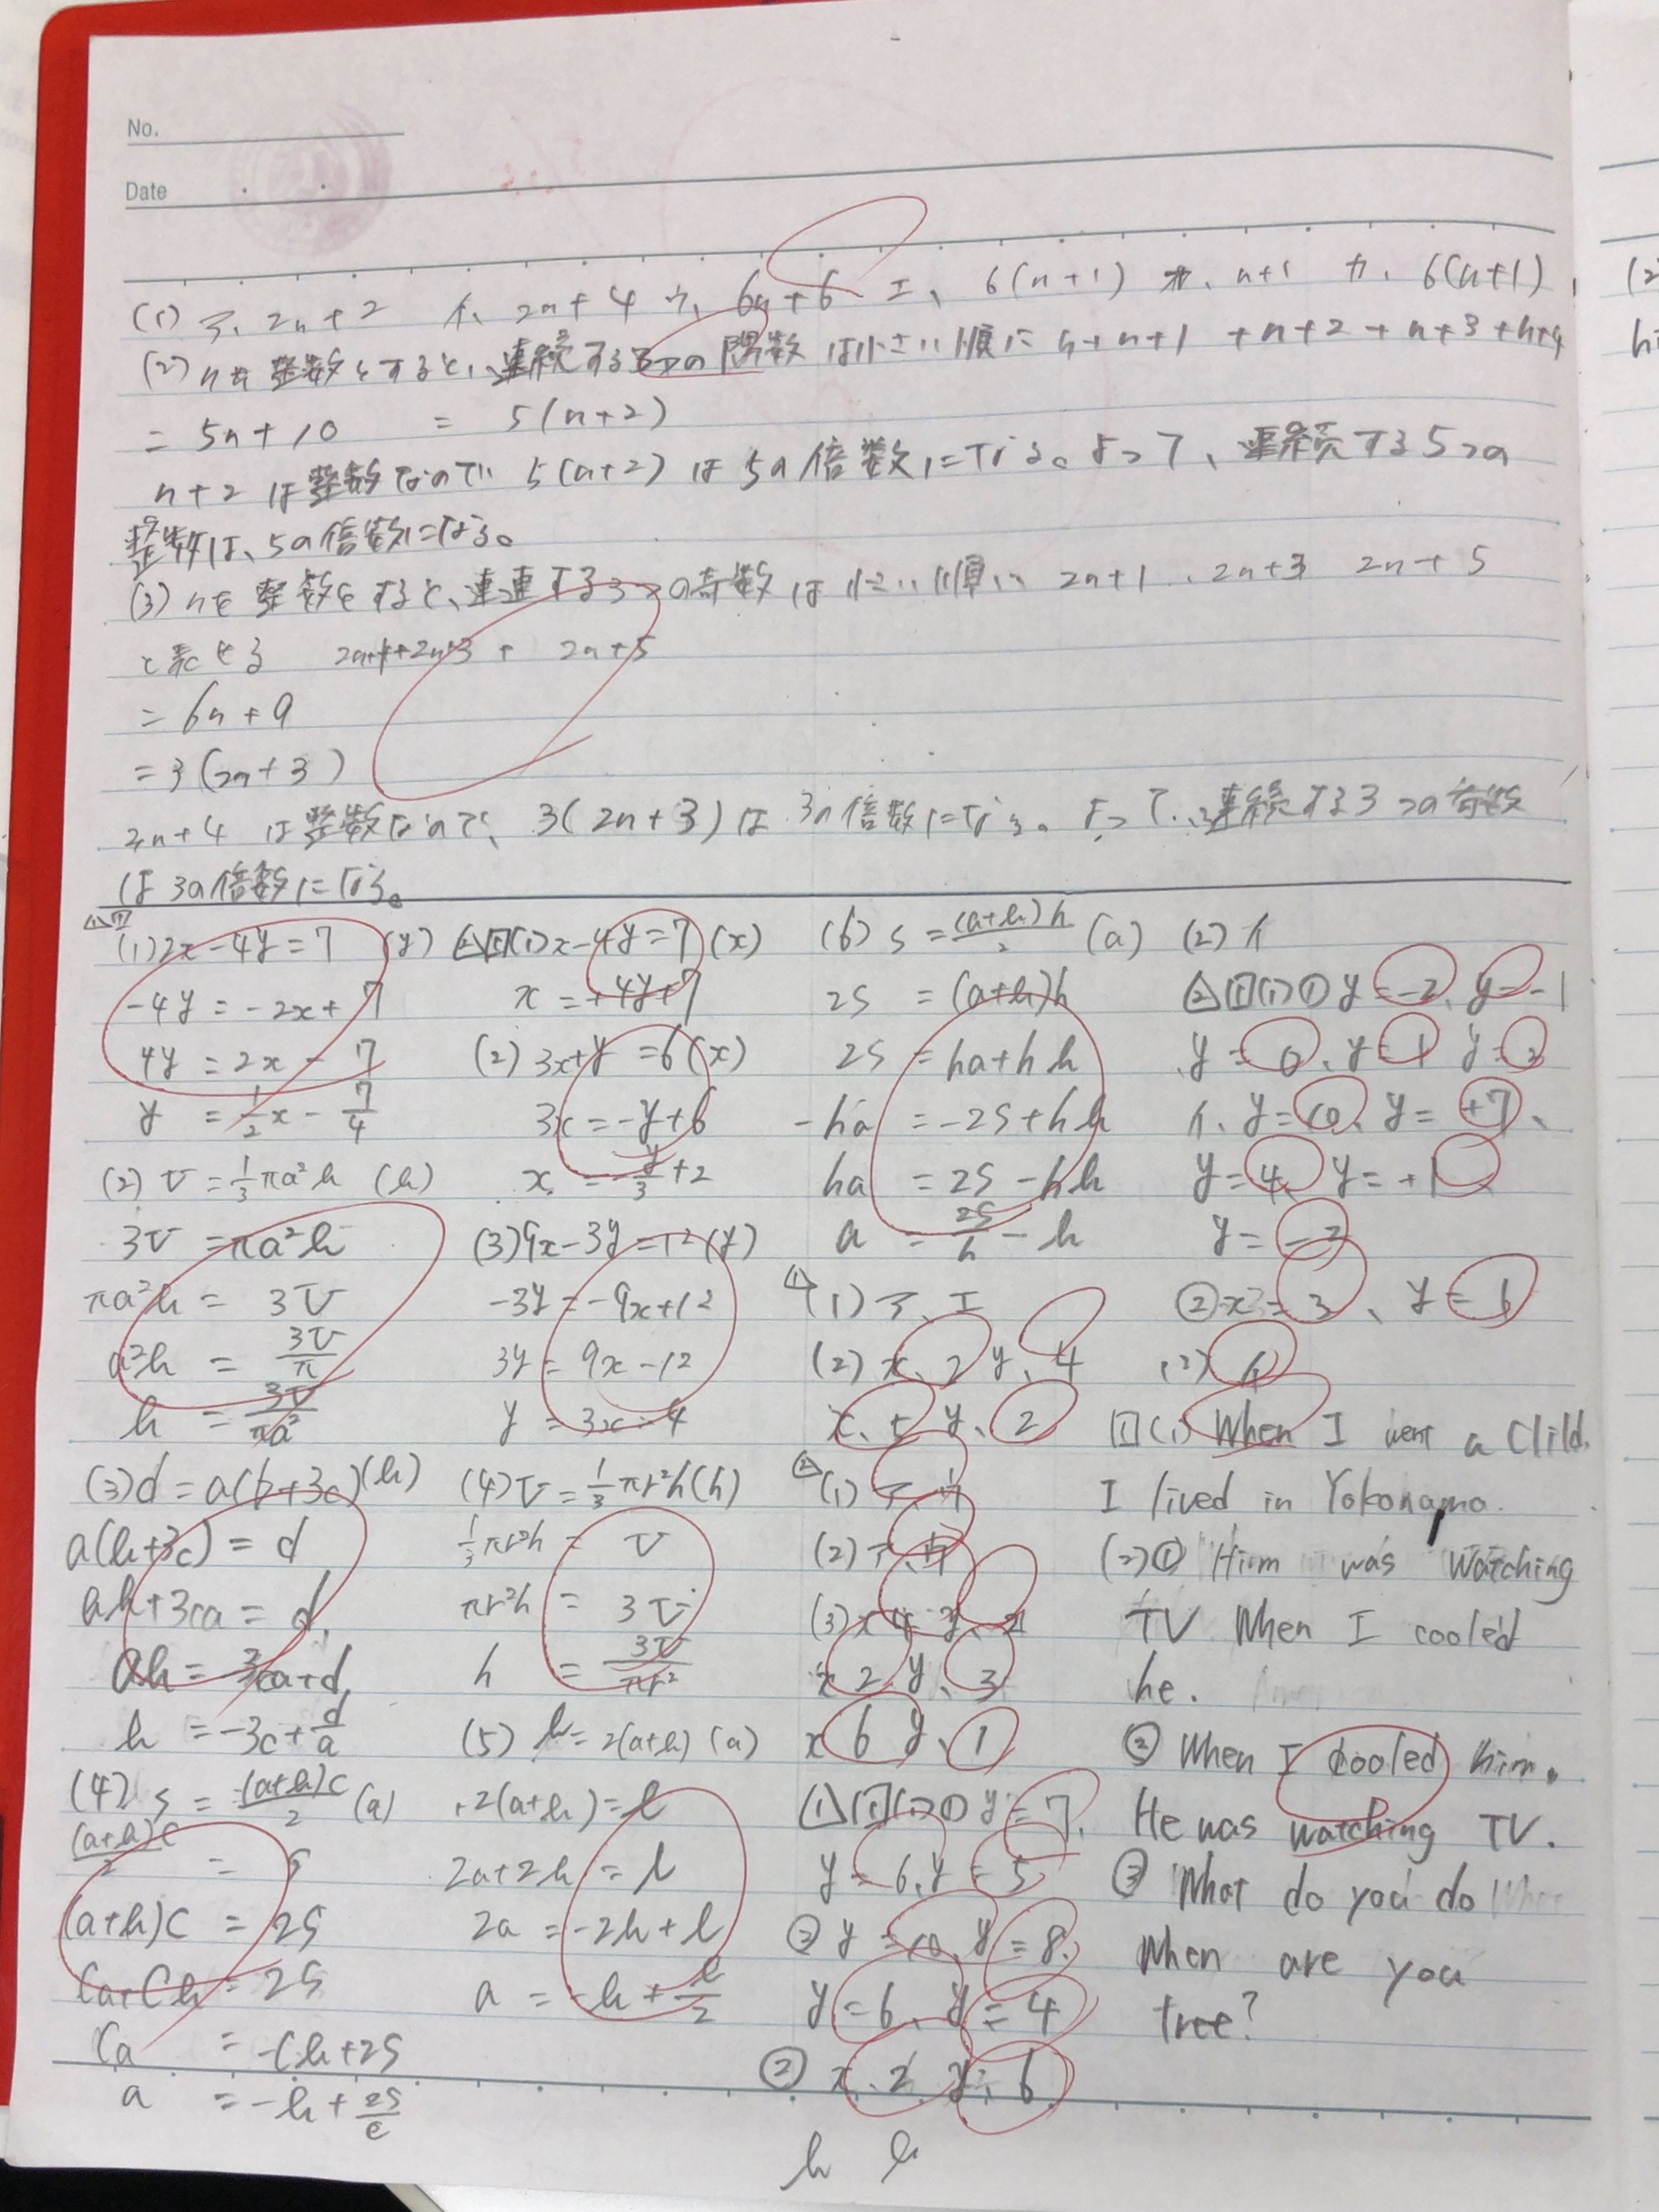 No.
Date
(1) ア、2n+2 イ、2n+4 ウ、6n+6 エ、6(n+1) オ、n+1 カ、6(n+1)
(2) nを整数とすると、連続する の 数は小さい順に n+n+1+n+2+n+3+n+4
= 5n+10 = 5(n+2)
n+2は整数なので 5(n+2)は5の倍数になる。よって、連続する5つの
整数は、5の倍数になる。
(3) nを整数をすると、連連する3つの奇数は小さい順に 2n+1、2n+3 2n+5
と表せる 2n+1+2n+3+2n+5
= 6n+9
= 3(2n+3)
2n+4は整数なので、3(2n+3)は3の倍数になる。よって、連続する3つの奇数
は3の倍数になる。
(1) 2x-4y=7 (y)
-4y=-2x+7
4y=2x-7
y=1/2x-7/4
(2) V=1/3πa²b (b)
3V=πa²b
πa²b=3V
a²b=3V/π
b=3V/πa²
(3) d=a(b+3c) (b)
a(b+3c)=d
ab+3ca=d
ab=-3ca+d
b=-3c+d/a
(4) S=(a+b)c/2 (a)
(a+b)c/2=S
(a+b)c=2S
ca+cb=2S
ca=-cb+2S
a=-b+2S/c
(1) x-4y=7 (x)
x=+4y+7
(2) 3x+y=6 (x)
3x=-y+6
x=-y/3+2
(3) 9x-3y=12 (y)
-3y=-9x+12
3y=9x-12
y=3x-4
(4) V=1/3πr²h (h)
1/3πr²h=V
πr²h=3V
h=3V/πr²
(5) l=2(a+b) (a)
2(a+b)=l
2a+2b=l
2a=-2b+l
a=-b+l/2
(6) S=(a+b)h/2 (a)
2S=(a+b)h
2S=ha+hb
-ha=-2S+hb
ha=2S-hb
a=2S/h-b
(1) ア、エ
(2) x、2 y、4
x、5 y、2
(1) ア、
(2) ア、
(3) x 4 y、
x 2 y、3
x 6 y、1
① y=7、
y=6、y=5
② y=10、y=8、
y=6、y=4
② x、2 y、6
h b
(2) イ
① y=-2、y=-1
y=0、y=1 y=2
イ、y=10、y=+7、
y=4、y=+1
y=-2
② x=3、y=6
(2) イ
(1) When I went a Clild.
I lived in Yokonama.
(2)① Him was Watching
TV When I cooled
he.
② When I cooled him.
He was watching TV.
③ What do you do
When are you
tree?